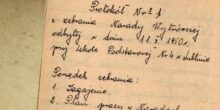 Protokół Nr 21
z zebrania Narady Wytwórczej
odbytej w dniu 11.I.1950 r.
przy Szkole Podstawowej Nr 4 w Lublinie
Porządek zebrania:
1. Zagajenie.
2. Plan pracy